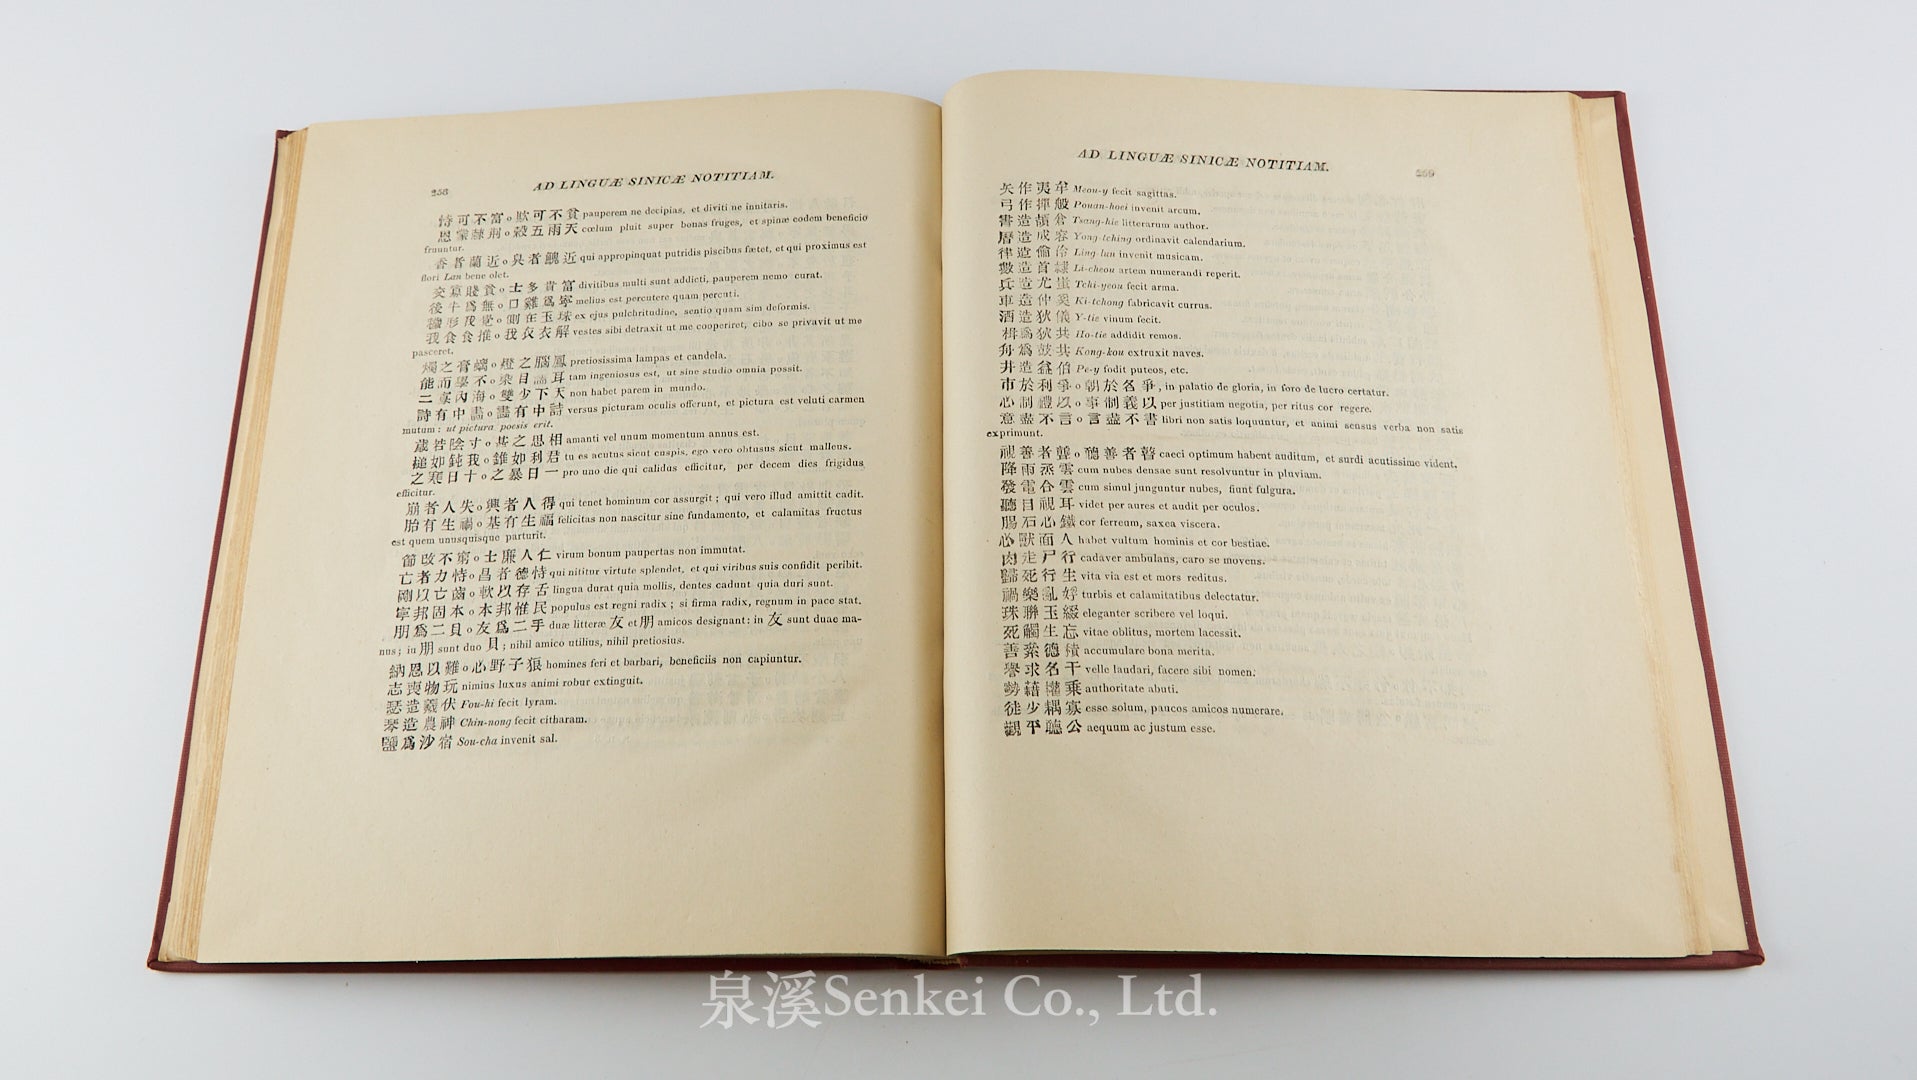 258
AD LINGUÆ SINICÆ NOTITIAM.
恃可不富。欺可不貧 pauperem ne decipias, et diviti ne innitaris.
恩蒙棘荆。穀五雨天 cœlum pluit super bonas fruges, et spinæ eodem beneficio
fruuntur.
香者蘭近。臭者鮑近 qui appropinquat putridis piscibus fœtet, et qui proximus est
flori Lan bene olet.
交寡賤貧。士多貴富 divitibus multi sunt addicti, pauperem nemo curat.
後牛爲無。口雞爲寧 melius est percutere quam percuti.
穢形我覺。側在玉珠 ex ejus pulchritudine, sentio quam sim deformis.
我食食推。我衣衣解 vestes sibi detraxit ut me cooperiret, cibo se privavit ut me
pasceret.
燭之膏螭。燈之腦鳳 pretiosissima lampas et candela.
能而學不。染目濡耳 tam ingeniosus est, ut sine studio omnia possit.
二寡內海。雙少下天 non habet parem in mundo.
詩有中畫。畫有中詩 versus picturam oculis offerunt, et pictura est veluti carmen
mutum: ut pictura poesis erit.
歲若陰寸。甚之思相 amanti vel unum momentum annus est.
槌如鈍我。錐如利君 tu es acutus sicut cuspis, ego vero obtusus sicut malleus.
之寒日十。之暴日一 pro uno die qui calidus efficitur, per decem dies frigidus
efficitur.
崩者人失。興者人得 qui tenet hominum cor assurgit; qui vero illud amittit cadit.
胎有生禍。基有生福 felicitas non nascitur sine fundamento, et calamitas fructus
est quem unusquisque parturit.
節改不窮。士廉人仁 virum bonum paupertas non immutat.
亡者力恃。昌者德恃 qui nititur virtute splendet, et qui viribus suis confidit peribit.
剛以亡齒。軟以存舌 lingua durat quia mollis, dentes cadunt quia duri sunt.
寧邦固本。本邦惟民 populus est regni radix; si firma radix, regnum in pace stat.
朋爲二貝。友爲二手 duæ litteræ 友 et 朋 amicos designant: in 友 sunt duae ma-
nus; in 朋 sunt duo 貝; nihil amico utilius, nihil pretiosius.
納恩以難。心野子狼 homines feri et barbari, beneficiis non capiuntur.
志喪物玩 nimius luxus animi robur extinguit.
瑟造羲伏 Fou-hi fecit lyram.
琴造農神 Chin-nong fecit citharam.
鹽爲沙宿 Sou-cha invenit sal.
AD LINGUÆ SINICÆ NOTITIAM.
259
矢作夷牟 Meou-y fecit sagittas.
弓作揮般 Pouan-hoei invenit arcum.
書造頡倉 Tsang-hie litterarum author.
曆造成容 Yong-tching ordinavit calendarium.
律造倫伶 Ling-lun invenit musicam.
數造首隸 Li-cheou artem numerandi reperit.
兵造尤蚩 Tchi-yeou fecit arma.
車造仲奚 Ki-tchong fabricavit currus.
酒造狄儀 Y-tie vinum fecit.
楫爲狄共 Ho-tie addidit remos.
舟爲鼓共 Kong-kou extruxit naves.
井造益伯 Pe-y fodit puteos, etc.
市於利爭。朝於名爭, in palatio de gloria, in foro de lucro certatur.
心制禮以。事制義以 per justitiam negotia, per ritus cor regere.
意盡不言。言盡不書 libri non satis loquuntur, et animi sensus verba non satis
exprimunt.
視善者聾。聽善者瞽 caeci optimum habent auditum, et surdi acutissime vident.
降雨烝雲 cum nubes densae sunt resolvuntur in pluviam.
發電合雲 cum simul junguntur nubes, fiunt fulgura.
聽目視耳 videt per aures et audit per oculos.
腸石心鐵 cor ferreum, saxea viscera.
心獸面人 habet vultum hominis et cor bestiae.
肉走尸行 cadaver ambulans, caro se movens.
歸死行生 vita via est et mors reditus.
禍樂亂好 turbis et calamitatibus delectatur.
珠聯玉綴 eleganter scribere vel loqui.
死觸生忘 vitae oblitus, mortem lacessit.
善絫德積 accumulare bona merita.
譽求名干 velle laudari, facere sibi nomen.
勢藉權乘 authoritate abuti.
徒少耦寡 esse solum, paucos amicos numerare.
觀平聽公 aequum ac justum esse.
泉溪Senkei Co., Ltd.